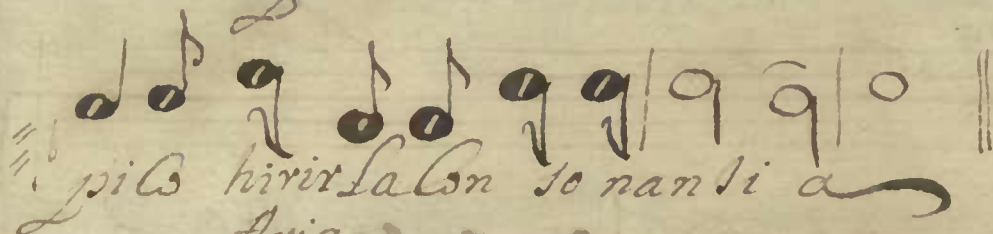 pico hirir la Con so nan si a
Aria